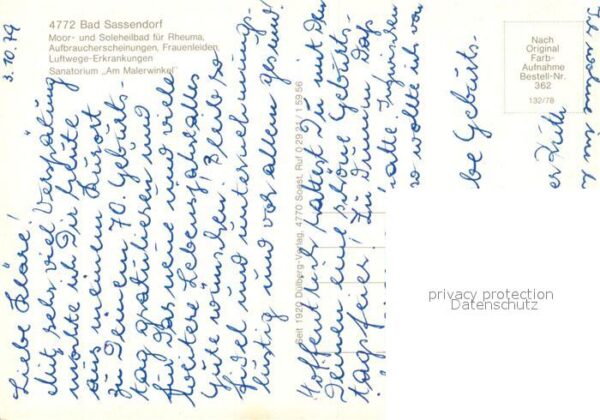 4772 Bad Sassendorf
Moor- und Soleheilbad für Rheuma,
Aufbraucherscheinungen, Frauenleiden,
Luftwege-Erkrankungen
Sanatorium „Am Malerwinkel"
3.10.79
Liebe Kläre!
Mit sehr viel Verspätung
möchte ich Dir heute
aus meinem Kurort
zu Deinem 70. Geburts-
tag gratulieren und
für das neue und viele
weitere Lebensjahre alles
Gute wünschen! Bleib so
fidel und unternehmungs-
lustig und vor allem gesund!
Seit 1920 Dülberg-Verlag, 4770 Soest, Ruf 0 29 21 / 1 59 56
Hoffentlich hattest Du mit Den
Deinen eine schöne Geburts-
tagsfeier! Zu dumm, daß
alle
so wollte ich von
be Geburts-
er
Nach
Original
Farb-
Aufnahme
Bestell-Nr.
362
132/78
privacy protection
Datenschutz